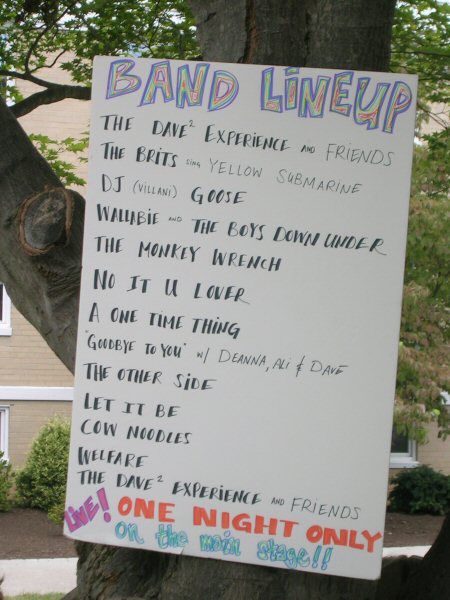 BAND LINEUP
THE DAVE² EXPERIENCE AND FRIENDS
THE BRITS sing YELLOW SUBMARINE
DJ (VILLANI) GOOSE
WALLABIE AND THE BOYS DOWN UNDER
THE MONKEY WRENCH
NO IT U LOVER
A ONE TIME THING
"GOODBYE TO YOU" w/ DEANNA, ALI & DAVE
THE OTHER SIDE
LET IT BE
COW NOODLES
WELFARE
THE DAVE² EXPERIENCE AND FRIENDS
LIVE! ONE NIGHT ONLY
on the main stage!!